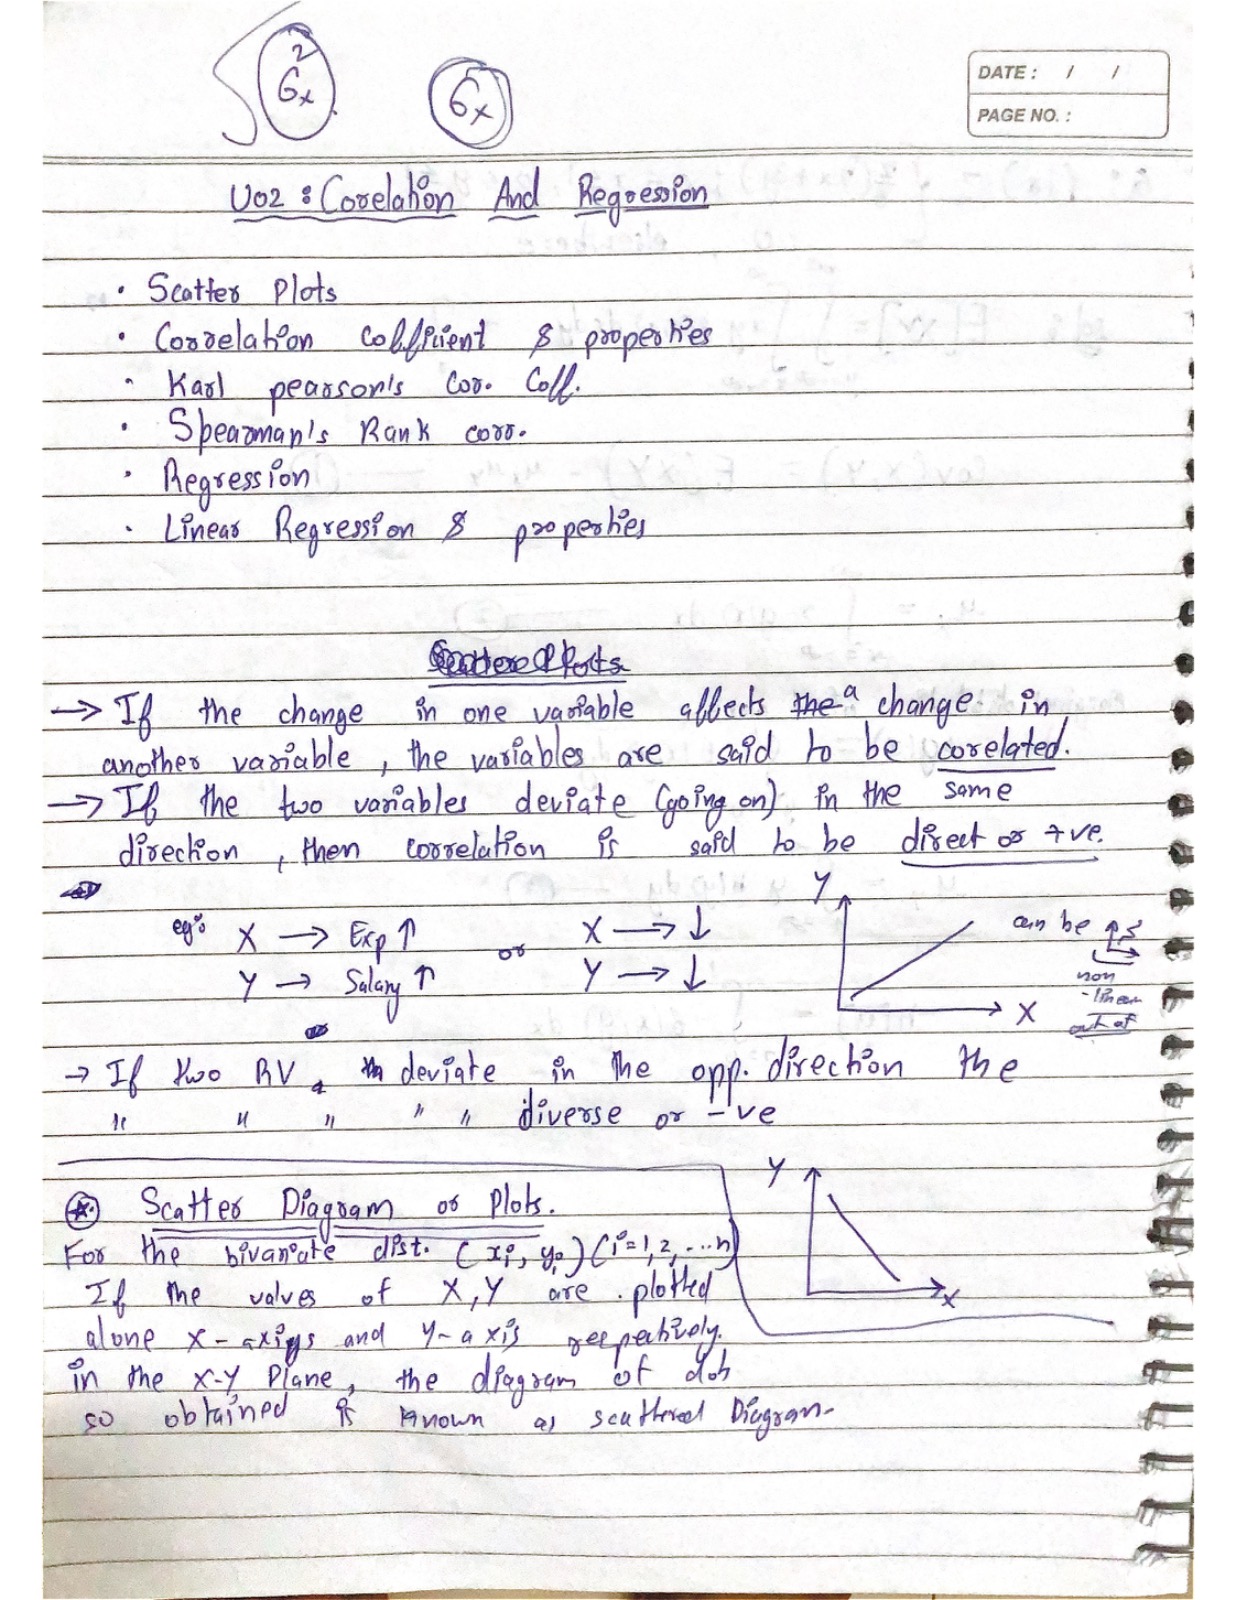 σx²
σx
DATE : / /
PAGE NO. :
U02 : Corelation And Regression
· Scatter Plots
· Correlation Coefficient & properties
· Karl pearson's Cor. Coff.
· Spearman's Rank corr.
· Regression
· Linear Regression & properties
→ If the change in one variable affects a change in
another variable, the variables are said to be corelated.
→ If the two variables deviate (going on) in the same
direction, then correlation is said to be direct or +ve.
eg: X → Exp ↑ or X → ↓
Y → Salary ↑ Y → ↓
Y
X
can be
non
-linear
out of
→ If two RV deviate in the opp. direction the
" " " " " diverse or -ve
Y
X
Scatter Diagram or Plots.
For the bivariate dist. (xi, yi) (i=1,2,...n)
If the values of X,Y are plotted
alone x-axis and y-axis respectively.
in the x-y Plane, the diagram of dots
so obtained is known as scattered Diagram.